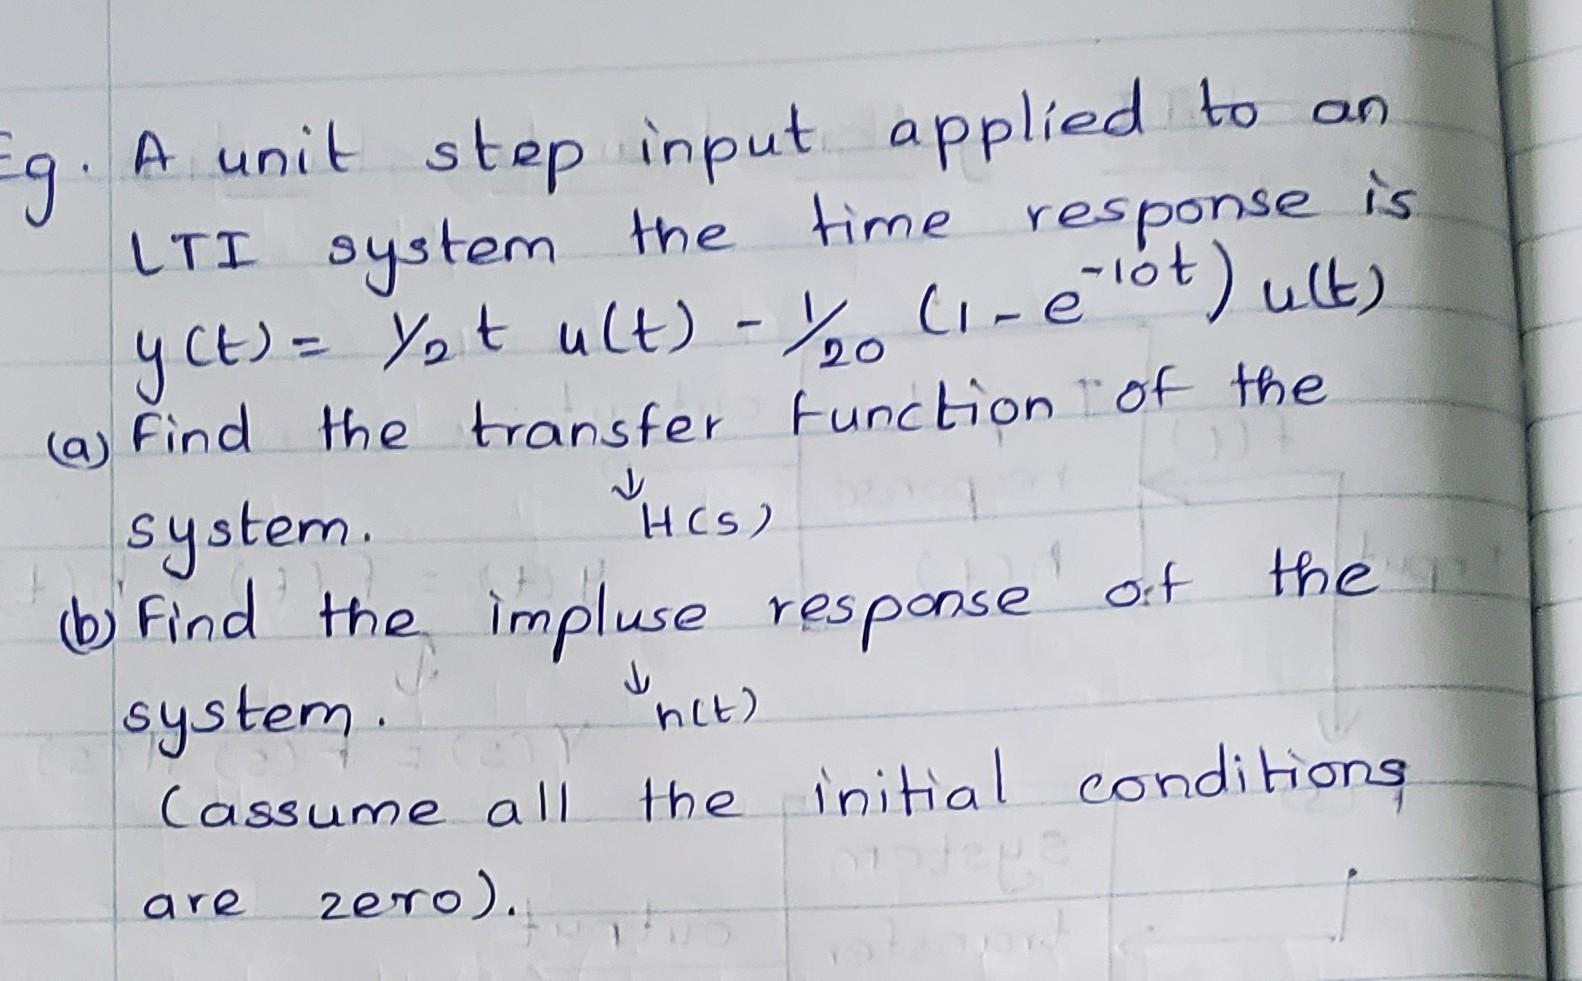 Eg. A unit step input applied to an
LTI system the time response is
y(t) = 1/2 t u(t) - 1/20 (1-e^-10t) u(t)
(a) Find the transfer function of the
↓
system. H(s)
(b) Find the impluse response of the
↓
system. h(t)
(assume all the initial conditions
are zero).